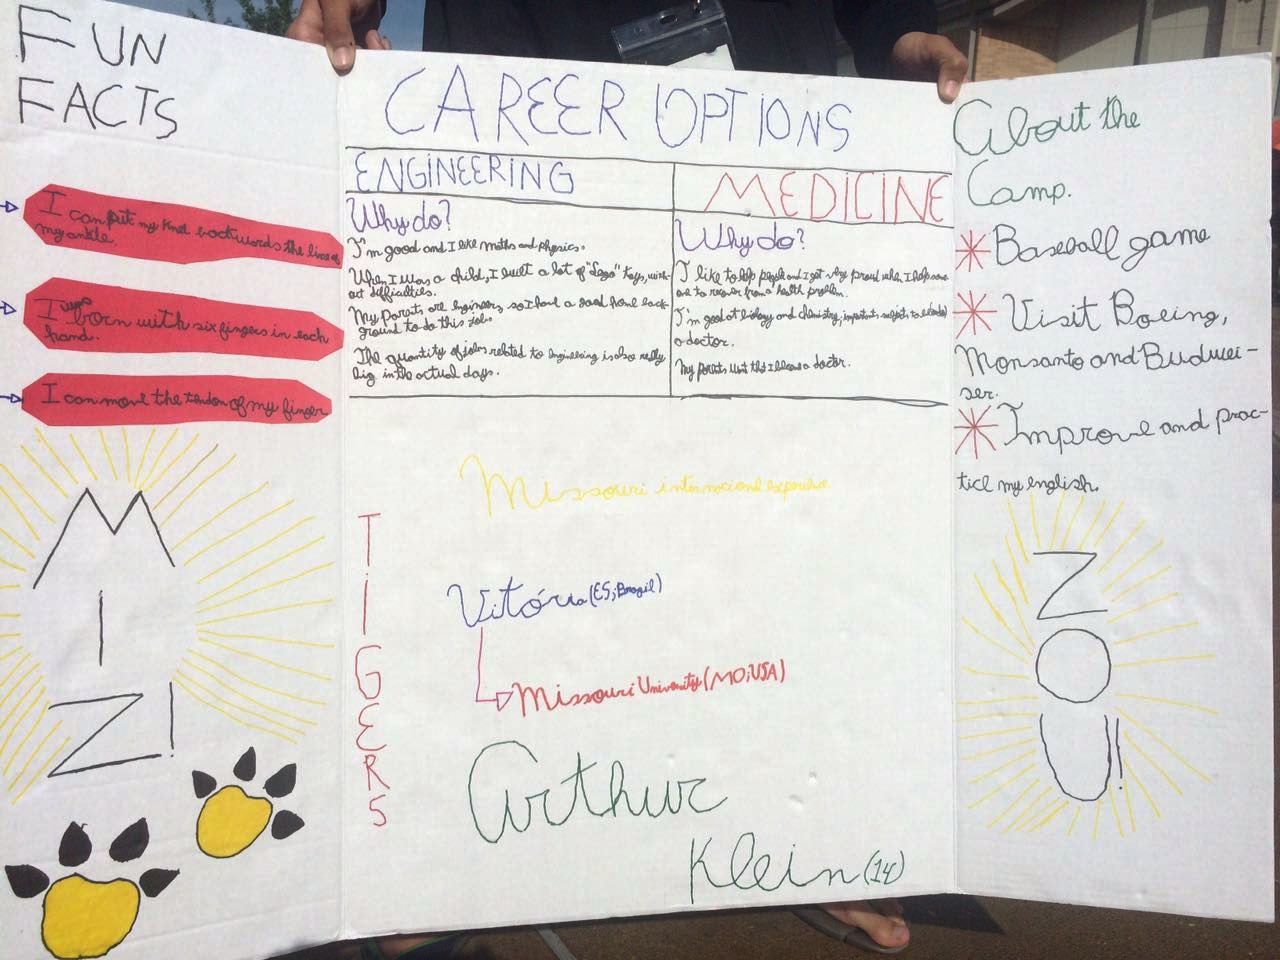 FUN
FACTS
I can put my knee backwords the line of
my ankle.
I was born with six fingers in each
hand.
I can move the tendon of my finger
MIZ!
CAREER OPTIONS
ENGINEERING
Why do?
I'm good and I like maths and physics.
When I was a child, I built a lot of "Lego" toys, with-
out difficulties.
My Parents are engineers, so I have a good home back-
ground to do this job.
The quantity of jobs related to engineering is also really
big in the actual days.
MEDICINE
Why do?
I like to help people and I get very proud when I help some
one to recover from a health problem.
I'm good at biology and chemistry, important subjects to
a doctor.
My parents want that I became a doctor.
Missouri internacional experience
TIGERS
Vitória (ES; Brazil)
Missouri University (MO; USA)
Arthur
Klein (14)
About the
Camp.
Baseball game
Visit Boeing,
Monsanto and Budwei-
ser.
Improve and prac-
tice my english.
ZOU!